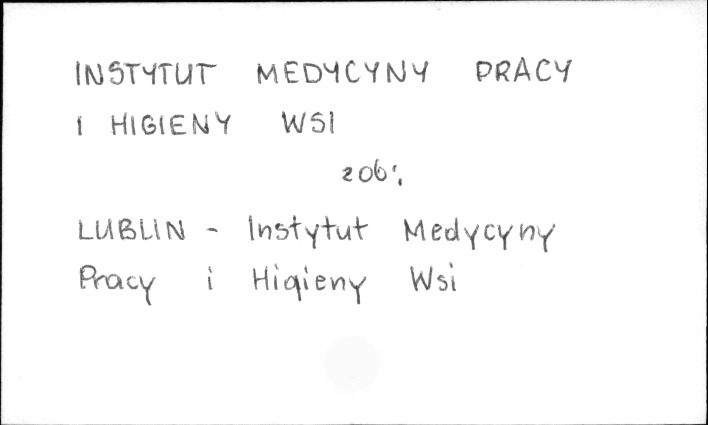 INSTYTUT MEDYCYNY PRACY
I HIGIENY WSI
zob:
LUBLIN - Instytut Medycyny
Pracy i Higieny Wsi